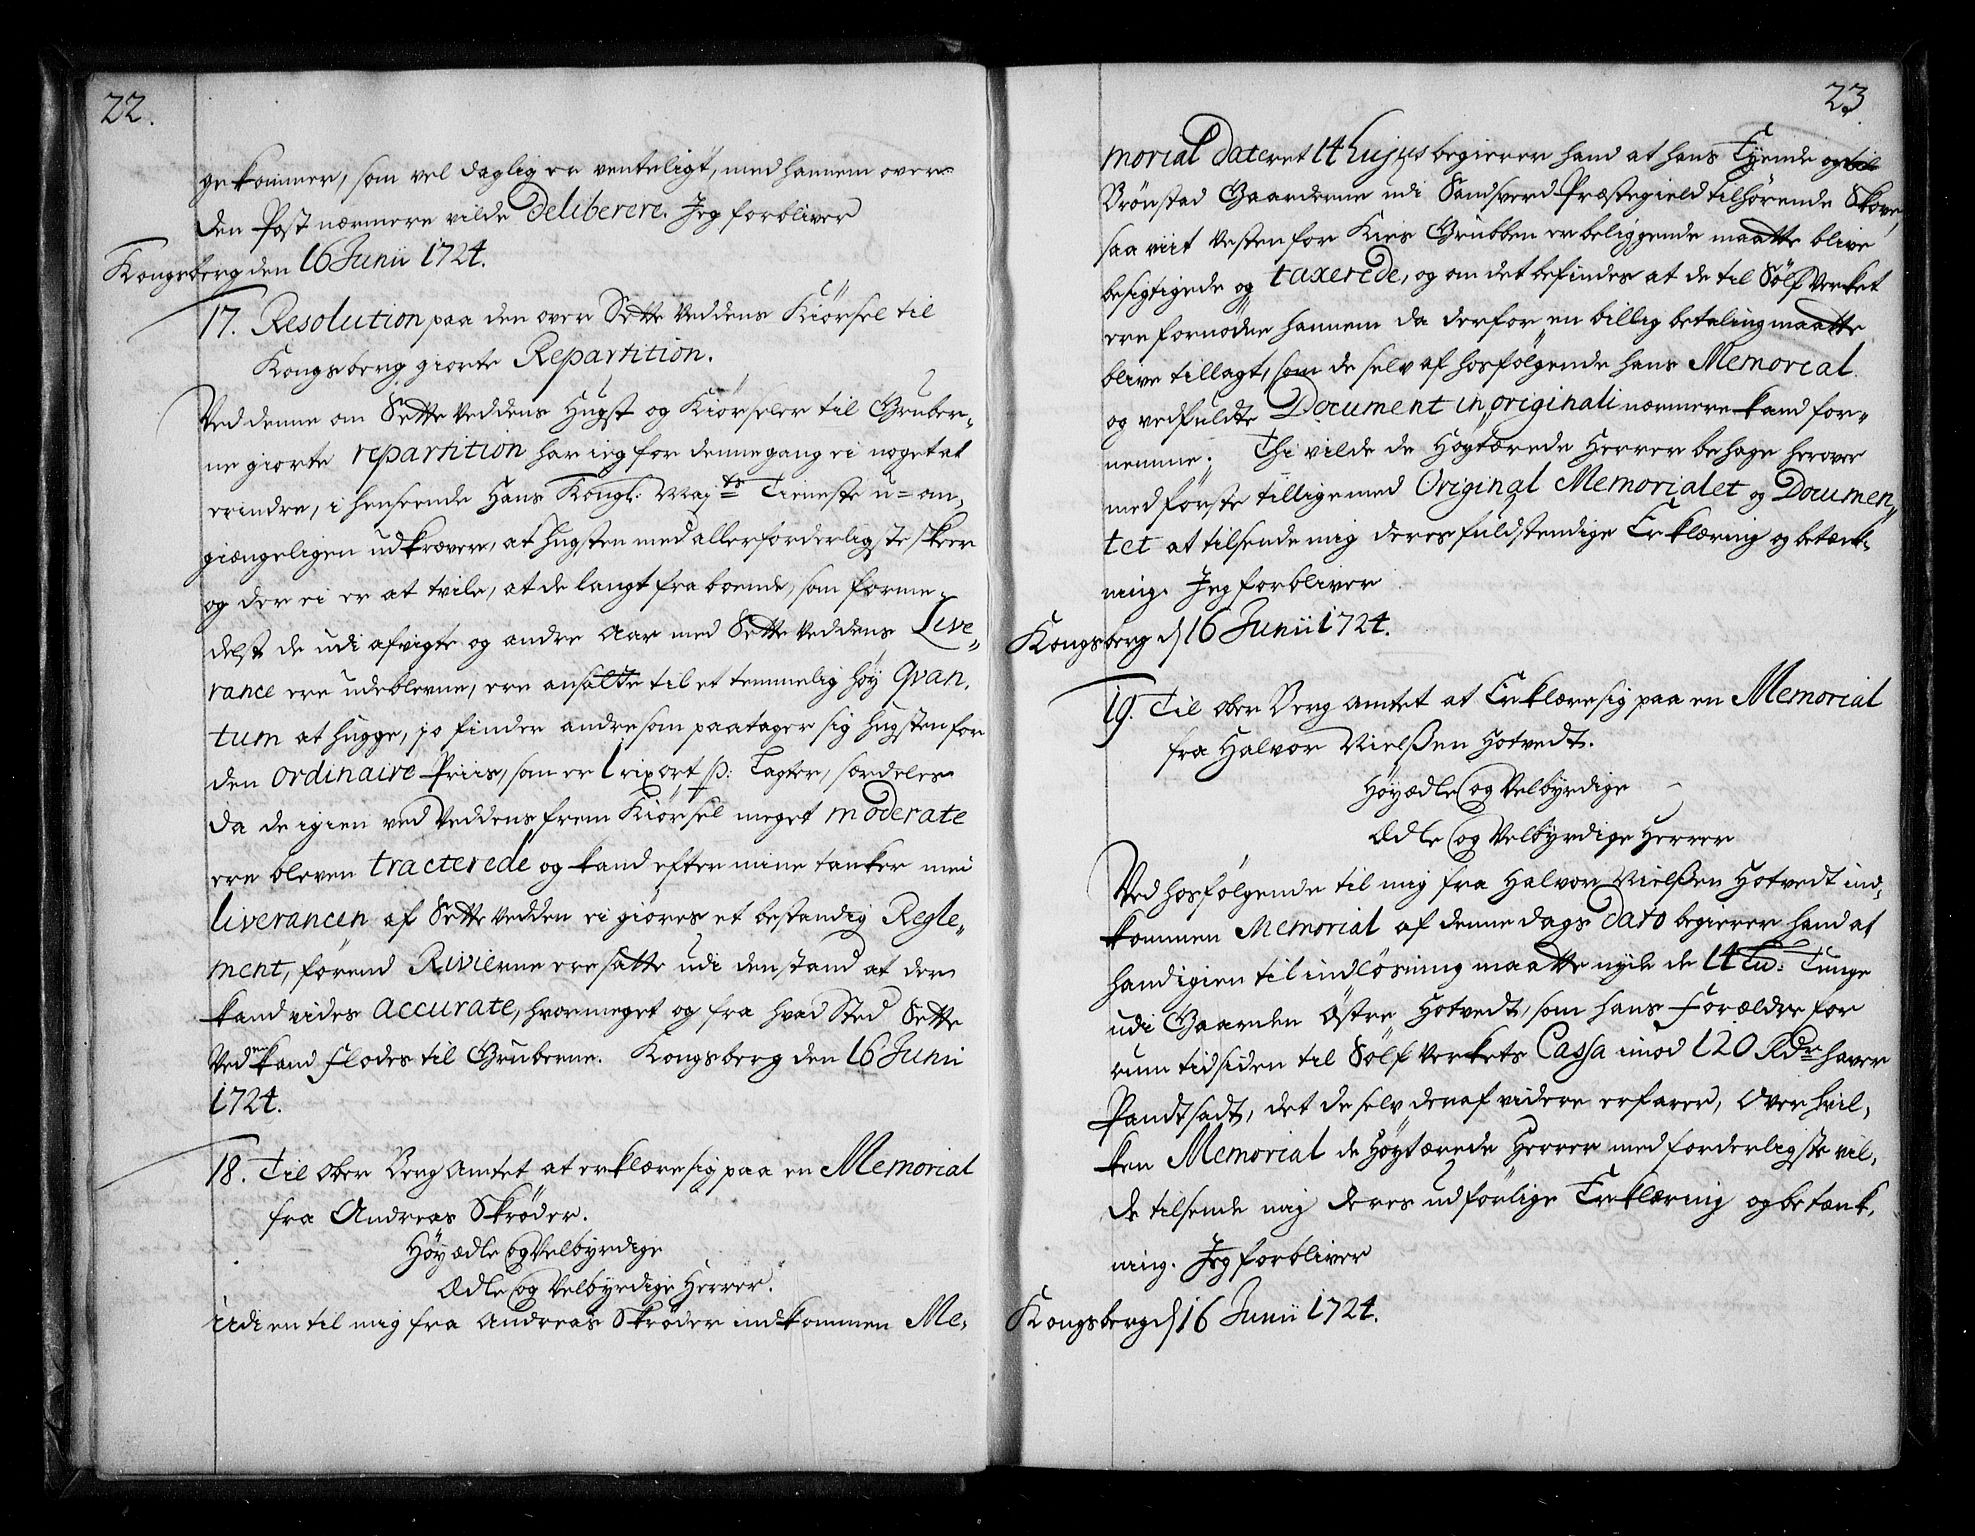 22.
gekommer, som vel daglig er venteligt, med hannem over
den Post nærmere vilde Deliberere. Jeg forbliver
Kongsberg den 16 Junii 1724.
17. Resolution paa den over Sette Veddens Kiørsel til
Kongsberg giorte Repartition.
Ved denne om Sette Veddens Hugst og Kiørseler til Gruber-
ne giorte repartition har ieg for denne gang ei noget at
erindre, i henseende Hans Kongl: Maj:ts Tieneste u-om-
giængeligen udkræver, at hugsten med allerforderligste skeer
og der ei er at tvile, at de langt fra boende, som forme-
delst de udi afvigte og andre Aar med Sette Veddens Live-
rance ere udeblevne, ere ansatte til et temmelig høy Qvan-
tum at hugge, jo finder andre som paatager sig hugsten for
den Ordinaire Priis, som er 1 rix ort p: Lagter, særdeles
da de igien ved Veddens frem Kiørsel meget moderate
ere bleven tracterede og kand efter mine tanker med
liverancen af Sette Vedden ei giøres et bestandig Regle-
ment, førend Rivierne ere satte udi den stand at der
kand vides accurate, hvormeget og fra hvad Sted Sette
Vedden kand flodes til Gruberne. Kongsberg den 16 Junii
1724.
18. Til Ober Berg Amtet at erklære sig paa en Memorial
fra Andreas Skrøder.
Høyædle og Velbyrdige
Ædle og Velbyrdige Herrer.
Udi en til mig fra Andreas Skrøder indkommen Me-
23
morial Dateret 14 hujus begierer hand at hans Tyende og til
Brønstad Gaarderne udi Sandsverd Præstegield tilhørende Skove,
saa viit Vesten for Kies Grubben er beliggende maatte blive
besigtigede og taxerede, og om det befindes at de til Sølf Verket
ere fornødne hannem da derfor en billig betaling maatte
blive tillagt, som de selv af hosfølgende hans Memorial
og vedfuldte Document in originali nærmere kand for-
nemme. Thi vilde de Høytærede Herrer behage herover
med første tillige med Original Memorialet og Documen-
tet at tilsende mig deres fuldstendige Erklæring og betænk-
ning. Jeg forbliver
Kongsberg d 16 Junii 1724.
19. Til Ober Berg Amtet at Erklære sig paa en Memorial
fra Halvor Nielßen Hotvedt.
Høyædle og Velbyrdige
Ædle og Velbyrdige Herrer
Ved hosfølgende til mig fra Halvor Nielßen Hotvedt ind-
kommen Memorial af denne dags Dato begierer hand at
hand igien til indløsning maatte nyde de 14 Lu: Tunge
udi Gaarden Østre Hotvedt, som hans Forældre for
rum tid siden til Sølf Verkets Cassa imod 120 Rdr haver
Pandtsadt, det de selv deraf videre erfarer, Over hvil-
ken Memorial de Høytærede Herrer med forderligste vil-
de tilsende mig deres udførlige Erklæring og betænk-
ning. Jeg forbliver
Kongsberg d 16 Junii 1724.